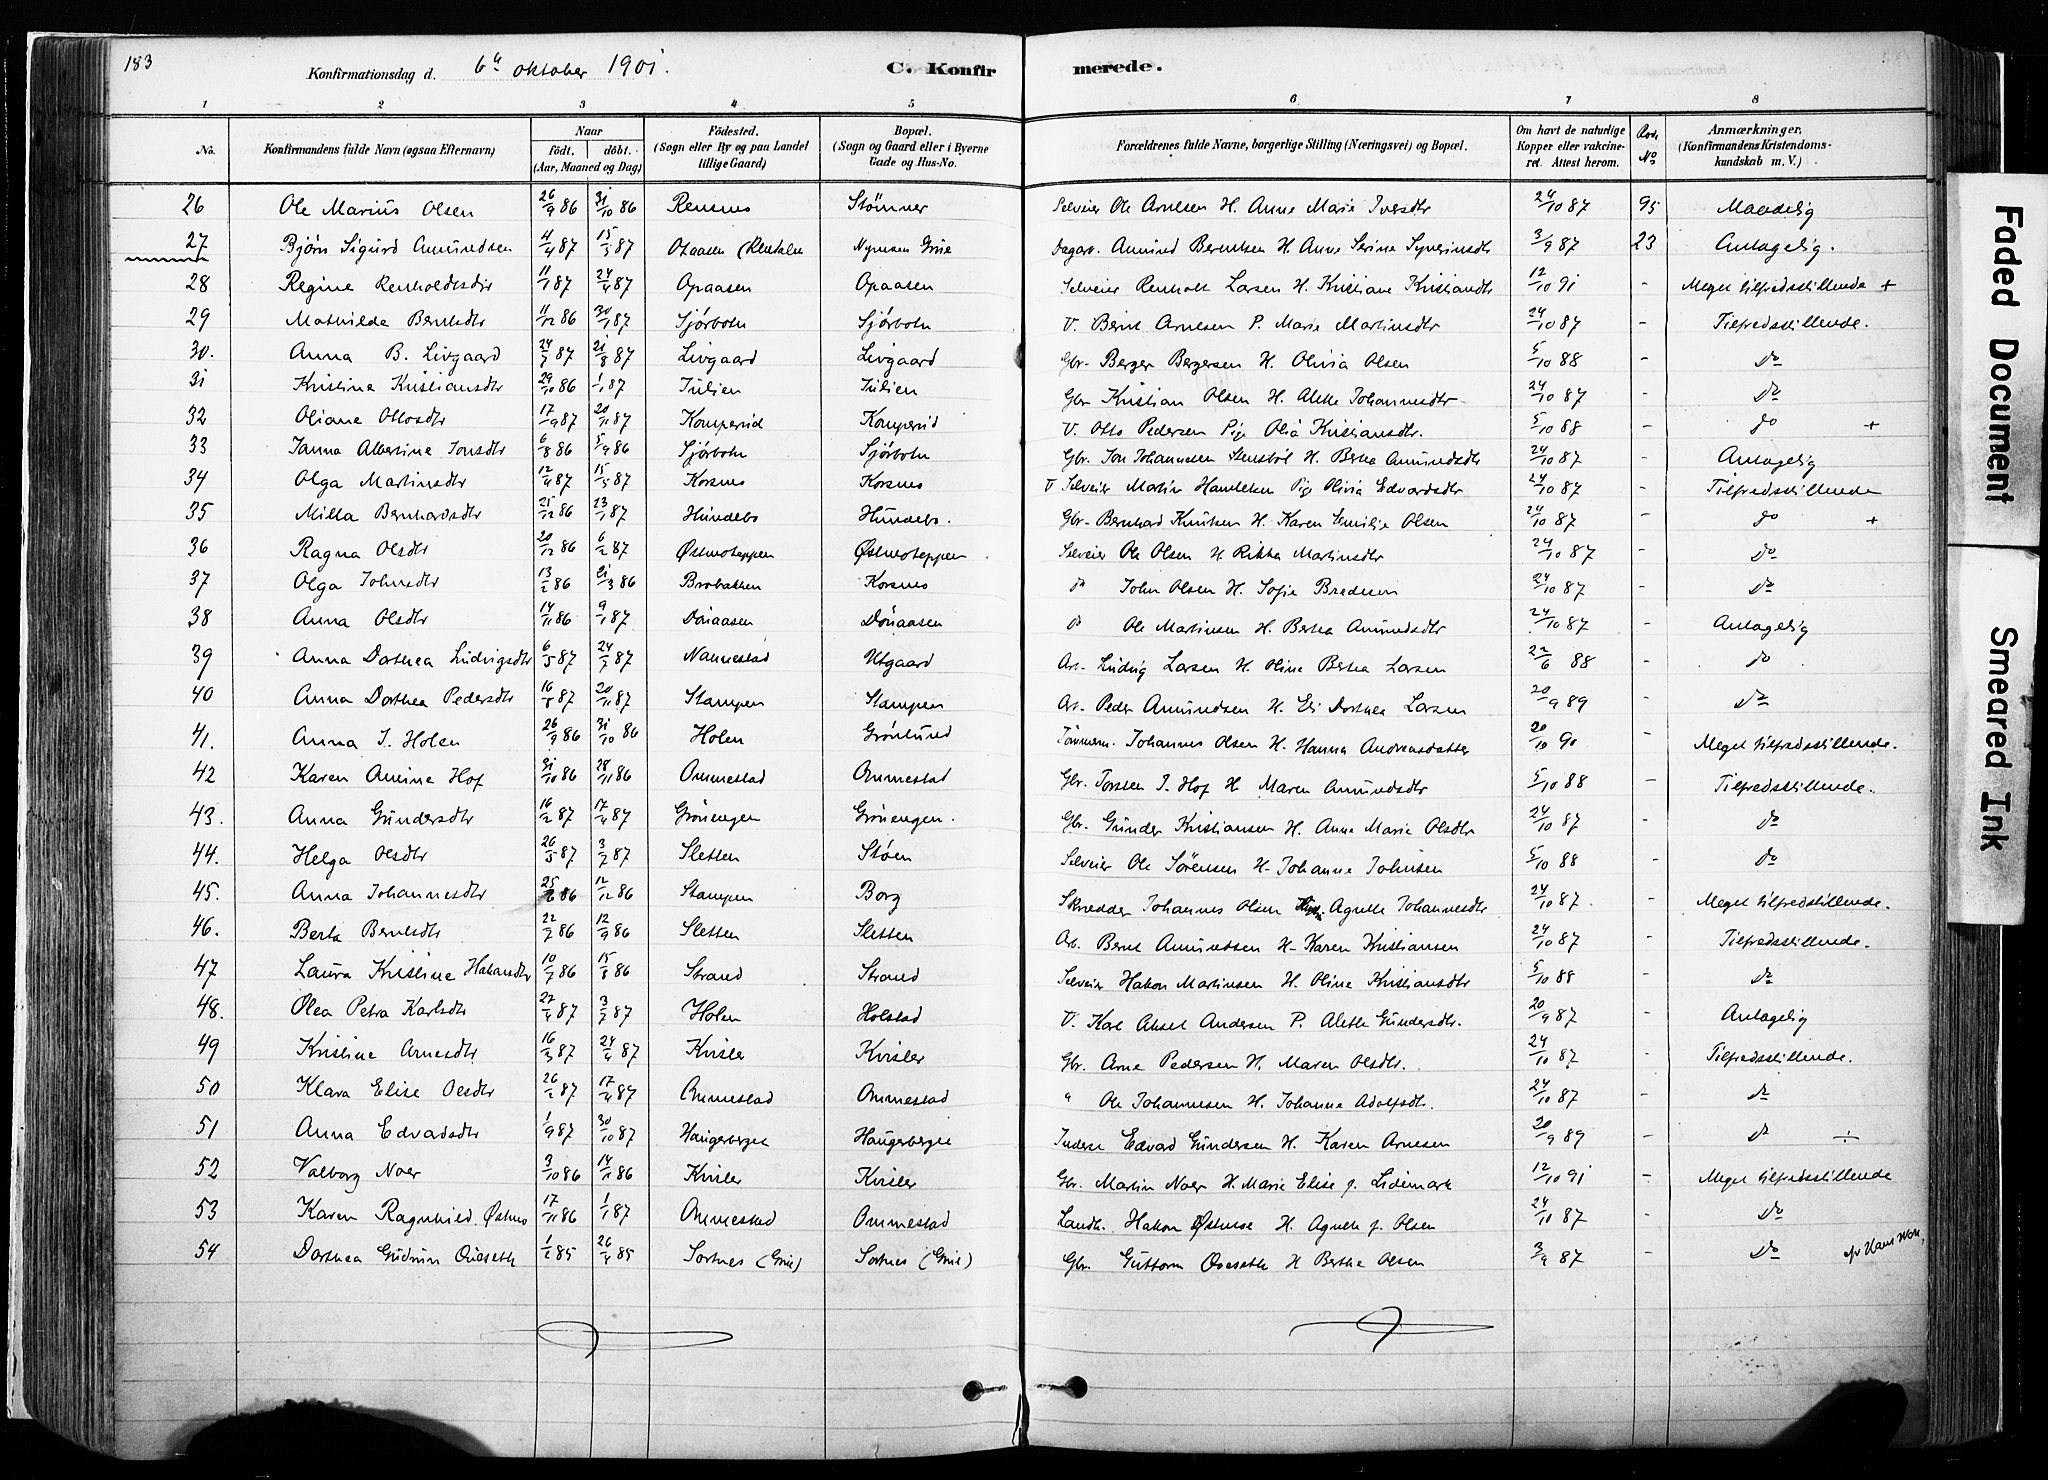 183
Konfirmationsdag d. 6te Oktober 1901. C. Konfirmerede.
1 2 3 4 5 6 7 8
No. Konfirmandens fulde Navn (ogsaa Efternavn) Naar födt. döbt. (Aar, Maaned og Dag) Födested. (Sogn eller By og paa Landet tillige Gaard) Bopæl. (Sogn og Gaard eller i Byerne Gade og Hus-No. Forældrenes fulde Navne, borgerlige Stilling (Næringsvei) og Bopæl. Om havt de naturlige Kopper eller vakcineret. Attest herom. No Anmærkninger. (Konfirmandens Kristendomskundskab m. V.)
26 Ole Marius Olsen 26/9 86 31/10 86 Rensmo Stömner Selveier Ole Arnesen H. Anne Marie Iversdtr 24/10 87 95 Maadelig
27 Björn Sigurd Amundsen 4/4 87 15/3 87 Nymoen Grue Dagarb. Amund Berntsen H. Anne Serine Syverinsdtr 3/9 87 23 Antagelig.
28 Regine Renholdtsdtr 11/1 87 24/4 87 Opaasen Opaasen Selveier Renholt Larsen H. Kristiane Kristiansdtr 12/10 91 - Meget tilfredsstillende +
29 Mathilde Berntsdtr 11/12 86 30/1 87 Sjörbotn Sjörbotn U. Bernt Arnesen P. Marie Martinsdtr 24/10 87 - Tilfredsstillende.
30. Anna B. Livgaard 24/7 87 21/8 87 Livgaard Livgaard Gbr. Berger Bergersen H. Olivia Olsen 5/10 88 - do
31 Kristine Kristiansdtr 29/10 86 1/1 87 Julien Julien Gbr. Kristian Olsen H. Alette Johannesdtr 24/10 87 - do
32 Oliane Ottosdtr 17/9 87 20/11 87 Komperud Komperud U. Otto Pedersen Pige Olia Kristiansdtr. 5/10 88 - do +
33 Janna Albertine Jonsdtr 6/8 86 5/9 86 Sjörbotn Sjörbotn Gbr. Jon Johannesen Stensböl H. Berthe Amundsdtr 24/10 87 - Antagelig
34 Olga Martinsdtr 12/4 87 15/5 87 Korsmo Korsmo U Selveier Martin Pige Olivia Edvardsdtr 24/10 87 - Tilfredsstillende
35 Milla Bernhardsdtr 25/12 86 23/1 87 Hundebo Hundebo. Gbr. Bernhard Knutsen H. Karen Emilie Olsen 24/10 87 - do +
36 Ragna Olsdtr 20/12 86 6/2 87 Østmoteppen Østmoteppen Selveier Ole Olsen H Rikka Martinsdtr 24/10 87 - do
37 Olga Johnsdtr 13/2 86 21/3 86 Brobakken Korsmo do John Olsen H. Sofie Bredesen 24/10 87 - do
38 Anna Olsdtr 14/11 86 9/1 87 Döraasen Döraasen do Ole Martinsen H. Berthea Amundsdtr 24/10 87 - Antagelig
39 Anna Dorthea Ludvigsdtr 6/5 87 24/7 87 Nannestad Utgaard Arb. Ludvig Larsen H. Oline Berthea Larsen 22/6 88 - do
40 Anna Dorthea Pedersdtr 16/8 87 20/11 87 Stampen Stampen Arb. Peder Amundsen H. Eli Dorthea Larsen 20/9 89 - do
41. Anna J. Holen 26/9 86 31/10 86 Holen Grönlund Tömmerm. Johannes Olsen H. Hanna Andreasdatter 20/10 90 - Meget tilfredsstillende.
42 Karen Amine Hof 31/10 86 28/11 86 Ommestad Ommestad Gbr. Torsten J. Hof H Maren Amundsdtr 5/10 88 - Tilfredsstillende.
43. Anna Gundersdtr 16/2 87 17/4 87 Grönengen Gröneng­en. Gbr. Gunder Kristiansen H. Anne Marie Olsdtr 24/10 87 - do
44. Helga Olsdtr 26/5 87 3/7 87 Sletten Støen Selveier Ole Sörensen H. Johanne Johnsen 5/10 88 - do
45. Anna Johannesdtr 25/6 86 12/12 86 Stampen Borg Skrædder Johannes Olsen Agnethe Johannesdtr 24/10 87 - Meget tilfredsstillende.
46. Berta Berntsdtr 22/7 86 12/9 86 Sletten Sletten Arb. Bernt Amundsen H. Karen Kristiansen 24/10 87 - Tilfredsstillende.
47 Laura Kristine Hakonsdtr 10/7 86 15/8 86 Strand Strand Selveier Hakon Martinsen H. Oline Kristiansdtr 5/10 88 - do
48. Olea Petra Karlsdtr 27/4 87 3/7 87 Holen Holstad U. Karl Aksel Andersen P. Alethe Gundersdtr. 20/9 87 - Antagelig
49 Kristine Arnesdtr 16/3 87 24/4 87 Kvisler Kvisler Gbr. Arne Pedersen H. Maren Olsdtr. 24/10 87 - Tilfredsstillende.
50 Klara Elise Olsdtr 26/2 87 17/4 87 Ommestad Ommestad " Ole Johannesen H. Johanne Adolfsdtr. 24/10 87 - do
51 Anna Edvardsdtr 1/9 87 30/10 87 Haugerberget Haugerberget Inderst Edvard Gundersen H. Karen Arnesen 20/9 89 - do ÷
52 Valborg Noer 3/10 86 14/11 86 Kvisler Kvisler Gbr. Martin Noer H. Marie Elise f. Lidemark 12/10 91 - Meget tilfredsstillende
53 Karen Ragnhild Østmo 17/11 86 1/1 87 Ommestad Ommestad Landh. Hakon Østmoe H. Agnethe f. Olsen 24/10 87 - do
54 Dorthea Gudrun Overseth 1/2 85 26/4 85 Sortnes (Grue) Sortnes (Grue) Gbr. Guttorm Oveseth H Berthe Olsen 3/9 87 - Do
Faded Document
Smeared Ink